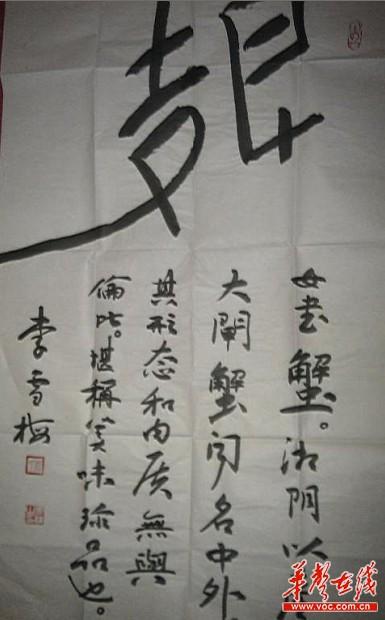 女书蟹。湘阴以
大閘蟹闻名中外
其形态和肉质無與
倫比。堪稱美味珍品也。
李雪梅
华声在线
www.voc.com.cn